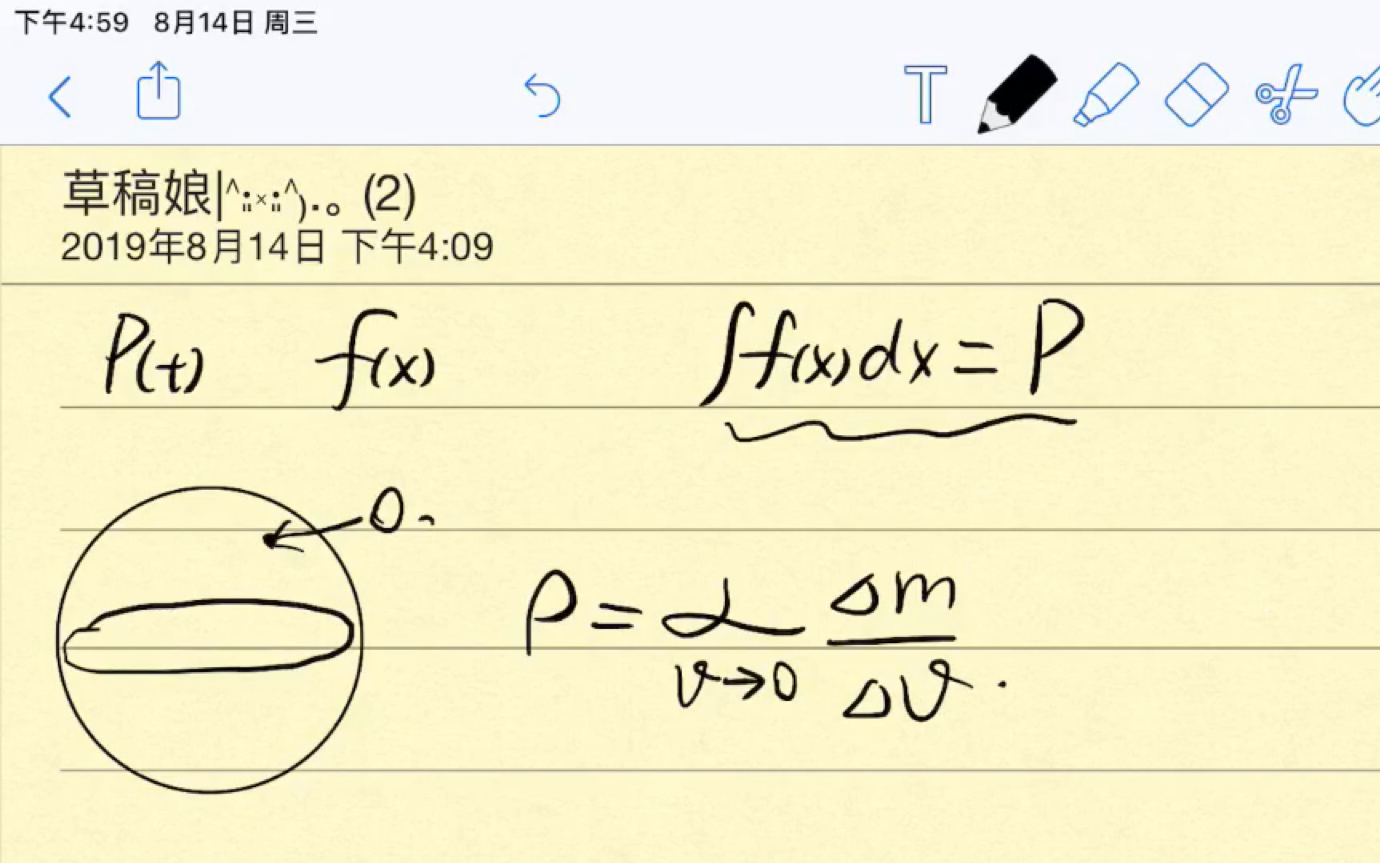 下午4:59 8月14日 周三
T
草稿娘|^:×:^).。(2)
2019年8月14日 下午4:09
P(t) f(x) ∫f(x)dx = P
0.
ρ = Δm
v→0 Δv.